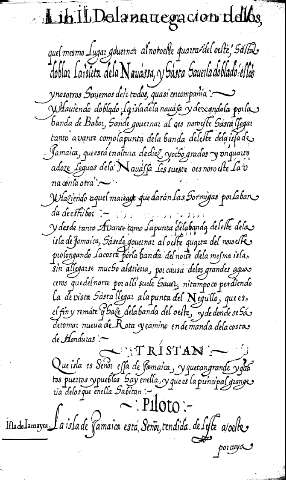 Lib. II. De la nauegacion de los,
quel mismo Lugar gouernar al noroeste quarta del oeste, hasta
doblar La isleta de la Nauassa, y hasta hauerla doblado ellos
y nosotros hauemos de ir todos, quasi en compañia:~
Y Hauiendo doblado La isla de la nauasa y dexandola por la
banda de Babor, hande gouernar al oes noroeste hasta llegar
tanto avante como la punta de la banda del este de la isla de
Jamaica, que esta en altura de diez y ocho grados y un quarto
adoze leguas de la Nauassa Les sueste oes noroeste La v
na con la otra:~
Y Haziendo aquel
que daran Las hormigas por la ban
da de estribor:~
y desde tanto Auante como La punta de la banda del este de la
isla de Jamaica, hasde gouernar al oeste quarta del noroeste
prolongando La costa por la banda del norte de la mesma isla,
sin allegarse mucho a la tierra, por causa de los grandes agua
ceros que del norte por alli suele hauer, ni tampoco perdiendo
La de vista hasta llegar a la punta del Neguillo, que es
el fin y remate q̃ haze de la banda del oeste, y de donde se ha
de tomar nueua de Rota y camino en demanda de la costa
de Honduras:~
TRISTAN
Que isla es Señor essa de Jamaica, y que tan grande y que
tos puertos y pueblos hay en ella, y que es la principal grange
ria de los que en ella habitan:~
PILOTO:
Isla de Jamayca
La isla de Jamaica esta, Señor, tendida. de leste a oeste
por altura